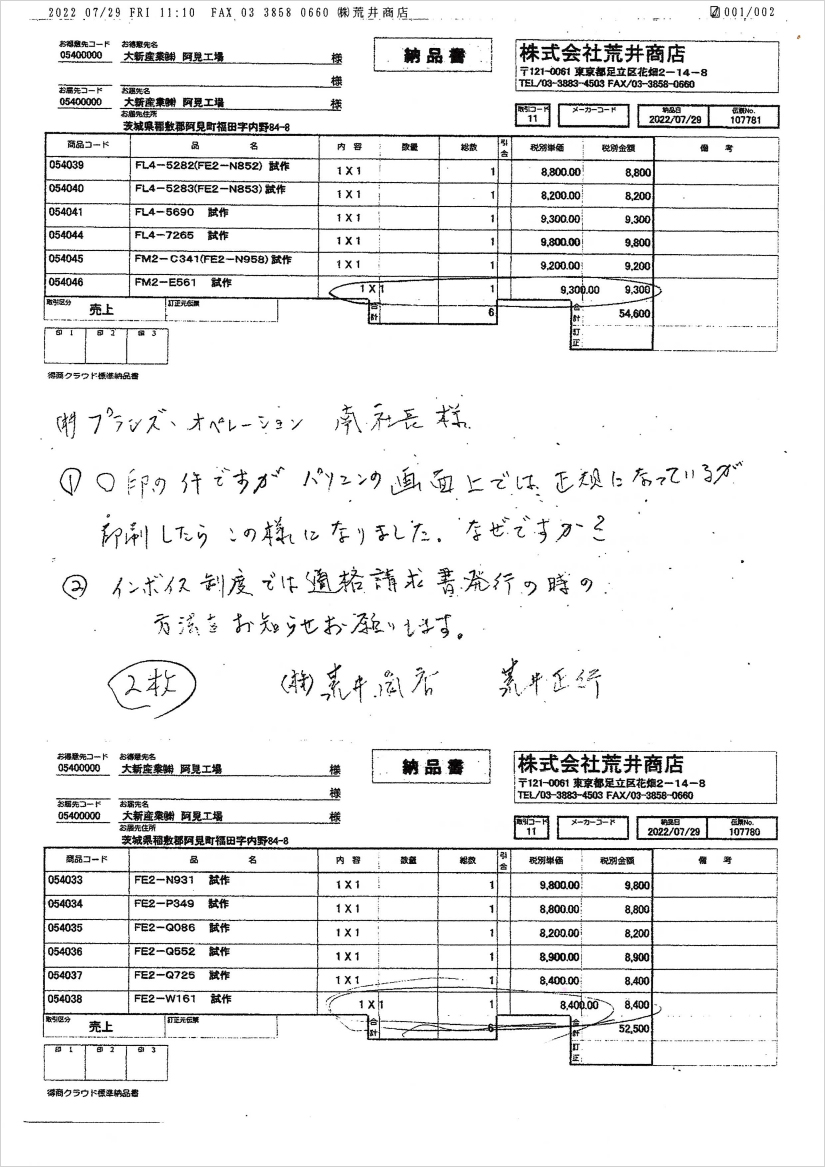 2022 07/29 FRI 11:10 FAX 03 3858 0660 ㈱荒井商店 001/002
お得意先コード お得意先名
05400000 大新産業㈱ 阿見工場 様
様
お届先コード お届先名
05400000 大新産業㈱ 阿見工場 様
お届先住所
茨城県稲敷郡阿見町福田字内野84-8
納品書
株式会社荒井商店
〒121-0061 東京都足立区花畑2-14-8
TEL/03-3883-4503 FAX/03-3858-0660
取引コード メーカーコード 納品日 伝票No.
11 2022/07/29 107781
商品コード 品名 内容 数量 総数 引合 税別単価 税別金額 備考
054039 FL4-5282(FE2-N852) 試作 1 X 1 1 8,800.00 8,800
054040 FL4-5283(FE2-N853) 試作 1 X 1 1 8,200.00 8,200
054041 FL4-5690 試作 1 X 1 1 9,300.00 9,300
054044 FL4-7265 試作 1 X 1 1 9,800.00 9,800
054045 FM2-C341(FE2-N958) 試作 1 X 1 1 9,200.00 9,200
054046 FM2-E561 試作 1 X 1 1 9,300.00 9,300
取引区分 売上 訂正元伝票 合計 6 合計 54,600
訂正
印1 印2 印3
得商クラウド標準納品書
㈱プランズ・オペレーション 南社長様
① ○印の件ですが パソコンの画面上では正規になっているが
印刷したらこの様になりました。なぜですか?
② インボイス制度では適格請求書発行の時の
方法をお知らせお願いします。
2枚 (株)荒井商店 荒井正行
お得意先コード お得意先名
05400000 大新産業㈱ 阿見工場 様
様
お届先コード お届先名
05400000 大新産業㈱ 阿見工場 様
お届先住所
茨城県稲敷郡阿見町福田字内野84-8
納品書
株式会社荒井商店
〒121-0061 東京都足立区花畑2-14-8
TEL/03-3883-4503 FAX/03-3858-0660
取引コード メーカーコード 納品日 伝票No.
11 2022/07/29 107780
商品コード 品名 内容 数量 総数 引合 税別単価 税別金額 備考
054033 FE2-N931 試作 1 X 1 1 9,800.00 9,800
054034 FE2-P349 試作 1 X 1 1 8,800.00 8,800
054035 FE2-Q086 試作 1 X 1 1 8,200.00 8,200
054036 FE2-Q552 試作 1 X 1 1 8,900.00 8,900
054037 FE2-Q725 試作 1 X 1 1 8,400.00 8,400
054038 FE2-W161 試作 1 X 1 1 8,400.00 8,400
取引区分 売上 訂正元伝票 合計 6 合計 52,500
訂正
印1 印2 印3
得商クラウド標準納品書